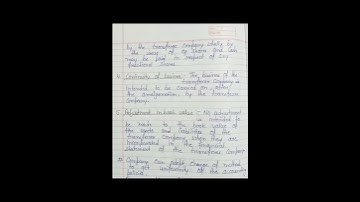 by the transferee company wholly by
the issue of eq shares and cash
may be paid in respect of any
fractional shares
4. Continuity of business - The business of the
transferor company is
intended to be carried on, after
the amalgamation by the transferee
company.
5. Adjustment in book value - No adjustment
is intended to
be made to the book value of
the assets and liabilities of the
transferor company when they are
incorporated in the financial
statement of the transferee company
company can change of method
to get uniformity of the accounting
policies